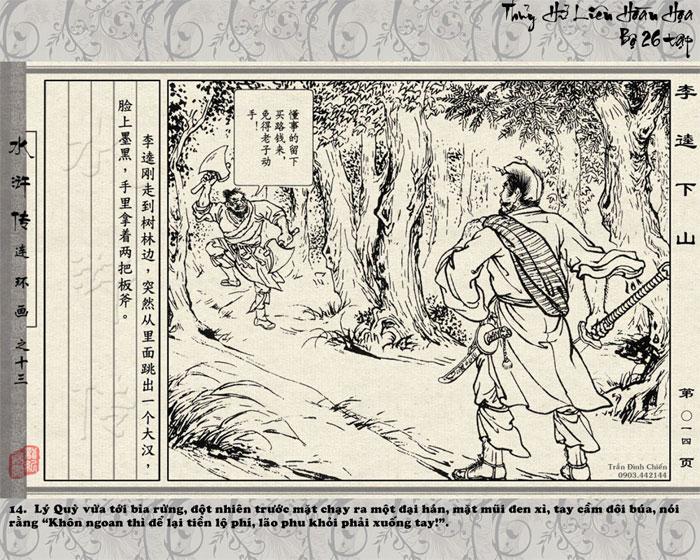 Thủy Hử Liên Hoàn Họa
Bộ 26 tập
李逵下山
第〇一四页
懂事的留下
买路钱来，
免得老子动
手！
李逵刚走到树林边，突然从里面跳出一个大汉，
脸上墨黑，手里拿着两把板斧。
水浒传
水浒传连环画之十三
Trần Đình Chiến
0903.442144
14. Lý Quỳ vừa tới bìa rừng, đột nhiên trước mặt chạy ra một đại hán, mặt mũi đen xì, tay cầm đôi búa, nói
rằng “Khôn ngoan thì để lại tiền lộ phí, lão phu khỏi phải xuống tay!”.